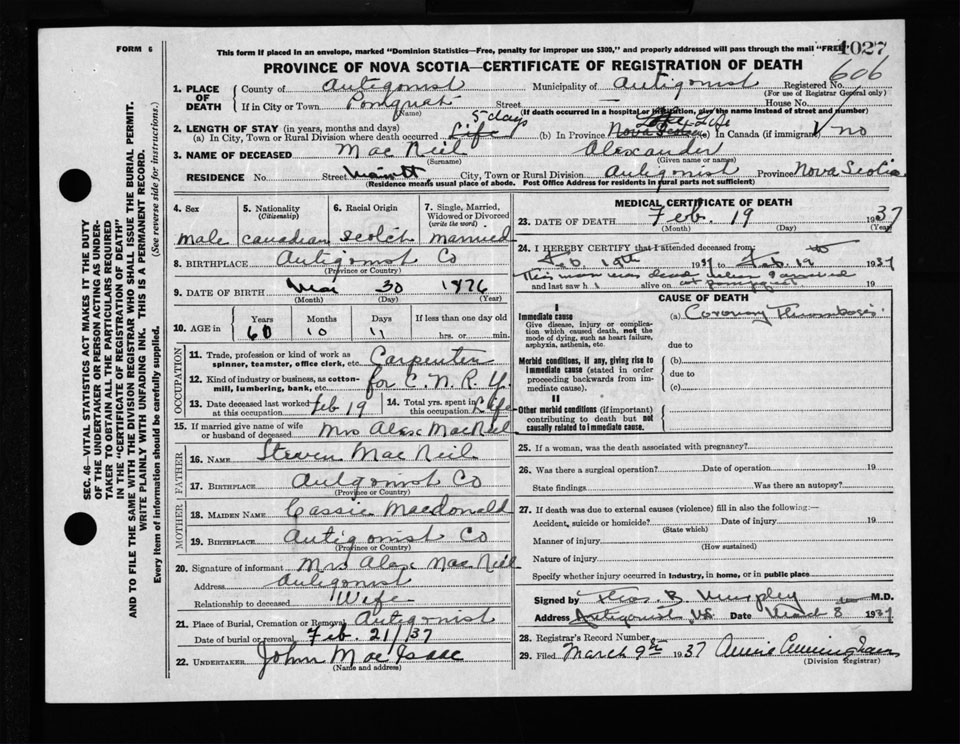 FORM 6
This form if placed in an envelope, marked "Dominion Statistics—Free, penalty for improper use $300," and properly addressed will pass through the mail "FREE"
1027
PROVINCE OF NOVA SCOTIA—CERTIFICATE OF REGISTRATION OF DEATH
606
1. PLACE OF DEATH County of Antigonist Municipality of Antigonist Registered No.
(For use of Registrar General only)
If in City or Town Street — House No.
(Name) (If death occurred in a hospital or institution, give the name instead of street and number)
5 days
2. LENGTH OF STAY (in years, months and days)
(a) In City, Town or Rural Division where death occurred Life (b) In Province Life Nova Scotia (c) In Canada (if immigrant) no
3. NAME OF DECEASED Mac Neil Alexander
(Surname) (Given name or names)
RESIDENCE No. Street City, Town or Rural Division Antigonist Province Nova Scotia
(Residence means usual place of abode. Post Office Address for residents in rural parts not sufficient)
4. Sex 5. Nationality (Citizenship) 6. Racial Origin 7. Single, Married, Widowed or Divorced (write the word)
male Canadian Scotch married
8. BIRTHPLACE Antigonist Co
(Province or Country)
9. DATE OF BIRTH 30 1876
(Month) (Day) (Year)
10. AGE in Years Months Days If less than one day old
60 10 11 hrs. or min.
OCCUPATION
11. Trade, profession or kind of work as spinner, teamster, office clerk, etc. Carpenter
12. Kind of industry or business, as cotton-mill, lumbering, bank, etc. for C. N. R. y.
13. Date deceased last worked at this occupation Feb 19 14. Total yrs. spent in this occupation Life
15. If married give name of wife or husband of deceased Mrs Alex MacNeil
FATHER
16. NAME Steven Mac Neil
17. BIRTHPLACE Antigonist Co
(Province or Country)
MOTHER
18. MAIDEN NAME Cassie Macdonald
19. BIRTHPLACE Antigonist Co
(Province or Country)
20. Signature of informant Mrs Alex Mac Neil
Address Antigonist
Relationship to deceased Wife
21. Place of Burial, Cremation or Removal Antigonist
Date of burial or removal Feb. 21/37
22. UNDERTAKER John Mac Isaac
(Name and address)
MEDICAL CERTIFICATE OF DEATH
23. DATE OF DEATH Feb. 19 1937
(Month) (Day) (Year)
24. I HEREBY CERTIFY that I attended deceased from:
Feb. 19th 1937 to Feb. 19 1937
This man was dead when I arrived
and last saw h alive on at Pomquet 19
CAUSE OF DEATH
I
Immediate cause
Give disease, injury or complication which caused death, not the mode of dying, such as heart failure, asphyxia, asthenia, etc.
(a) Coronary Thrombosis
due to
Morbid conditions, if any, giving rise to immediate cause (stated in order proceeding backwards from immediate cause).
(b)
due to
(c)
II
Other morbid conditions (if important) contributing to death but not causally related to immediate cause.
25. If a woman, was the death associated with pregnancy?
26. Was there a surgical operation? Date of operation 19
State findings Was there an autopsy?
27. If death was due to external causes (violence) fill in also the following:—
Accident, suicide or homicide? Date of injury 19
(State which)
Manner of injury
(How sustained)
Nature of injury
Specify whether injury occurred in industry, in home, or in public place
Signed by Thos. B. Murphy M.D.
Address Antigonist N.S. Date March 8 1937
28. Registrar's Record Number
29. Filed March 9th 1937 Annie Cunningham
(Division Registrar)
SEC. 46—VITAL STATISTICS ACT MAKES IT THE DUTY
OF THE UNDERTAKER OR PERSON ACTING AS UNDER-
TAKER TO OBTAIN ALL THE PARTICULARS REQUIRED
IN THE "CERTIFICATE OF REGISTRATION OF DEATH"
AND TO FILE THE SAME WITH THE DIVISION REGISTRAR WHO SHALL ISSUE THE BURIAL PERMIT.
WRITE PLAINLY WITH UNFADING INK. THIS IS A PERMANENT RECORD.
Every item of information should be carefully supplied. (See reverse side for instructions.)